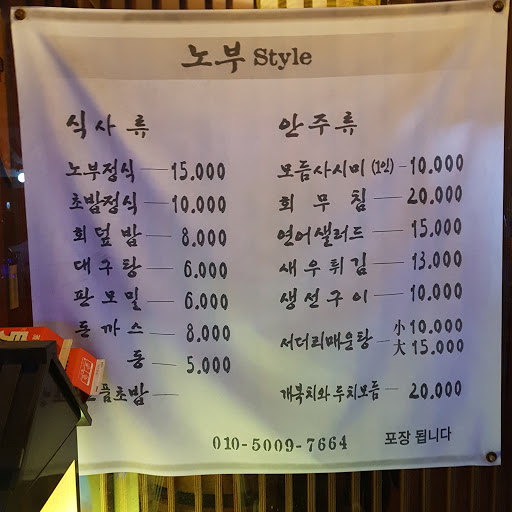 노부 Style
식사류
노부정식 — 15.000
초밥정식 — 10.000
회덮밥 — 8.000
대구탕 — 6.000
판모밀 — 6.000
돈까스 — 8.000
동 — 5.000
플초밥 —
안주류
모듬사시미 (1인) — 10.000
회무침 — 20.000
연어샐러드 — 15.000
새우튀김 — 13.000
생선구이 — 10.000
서더리매운탕 — 小 10.000
大 15.000
개복치와 루치모듬 — 20.000
010-5009-7664
포장 됩니다